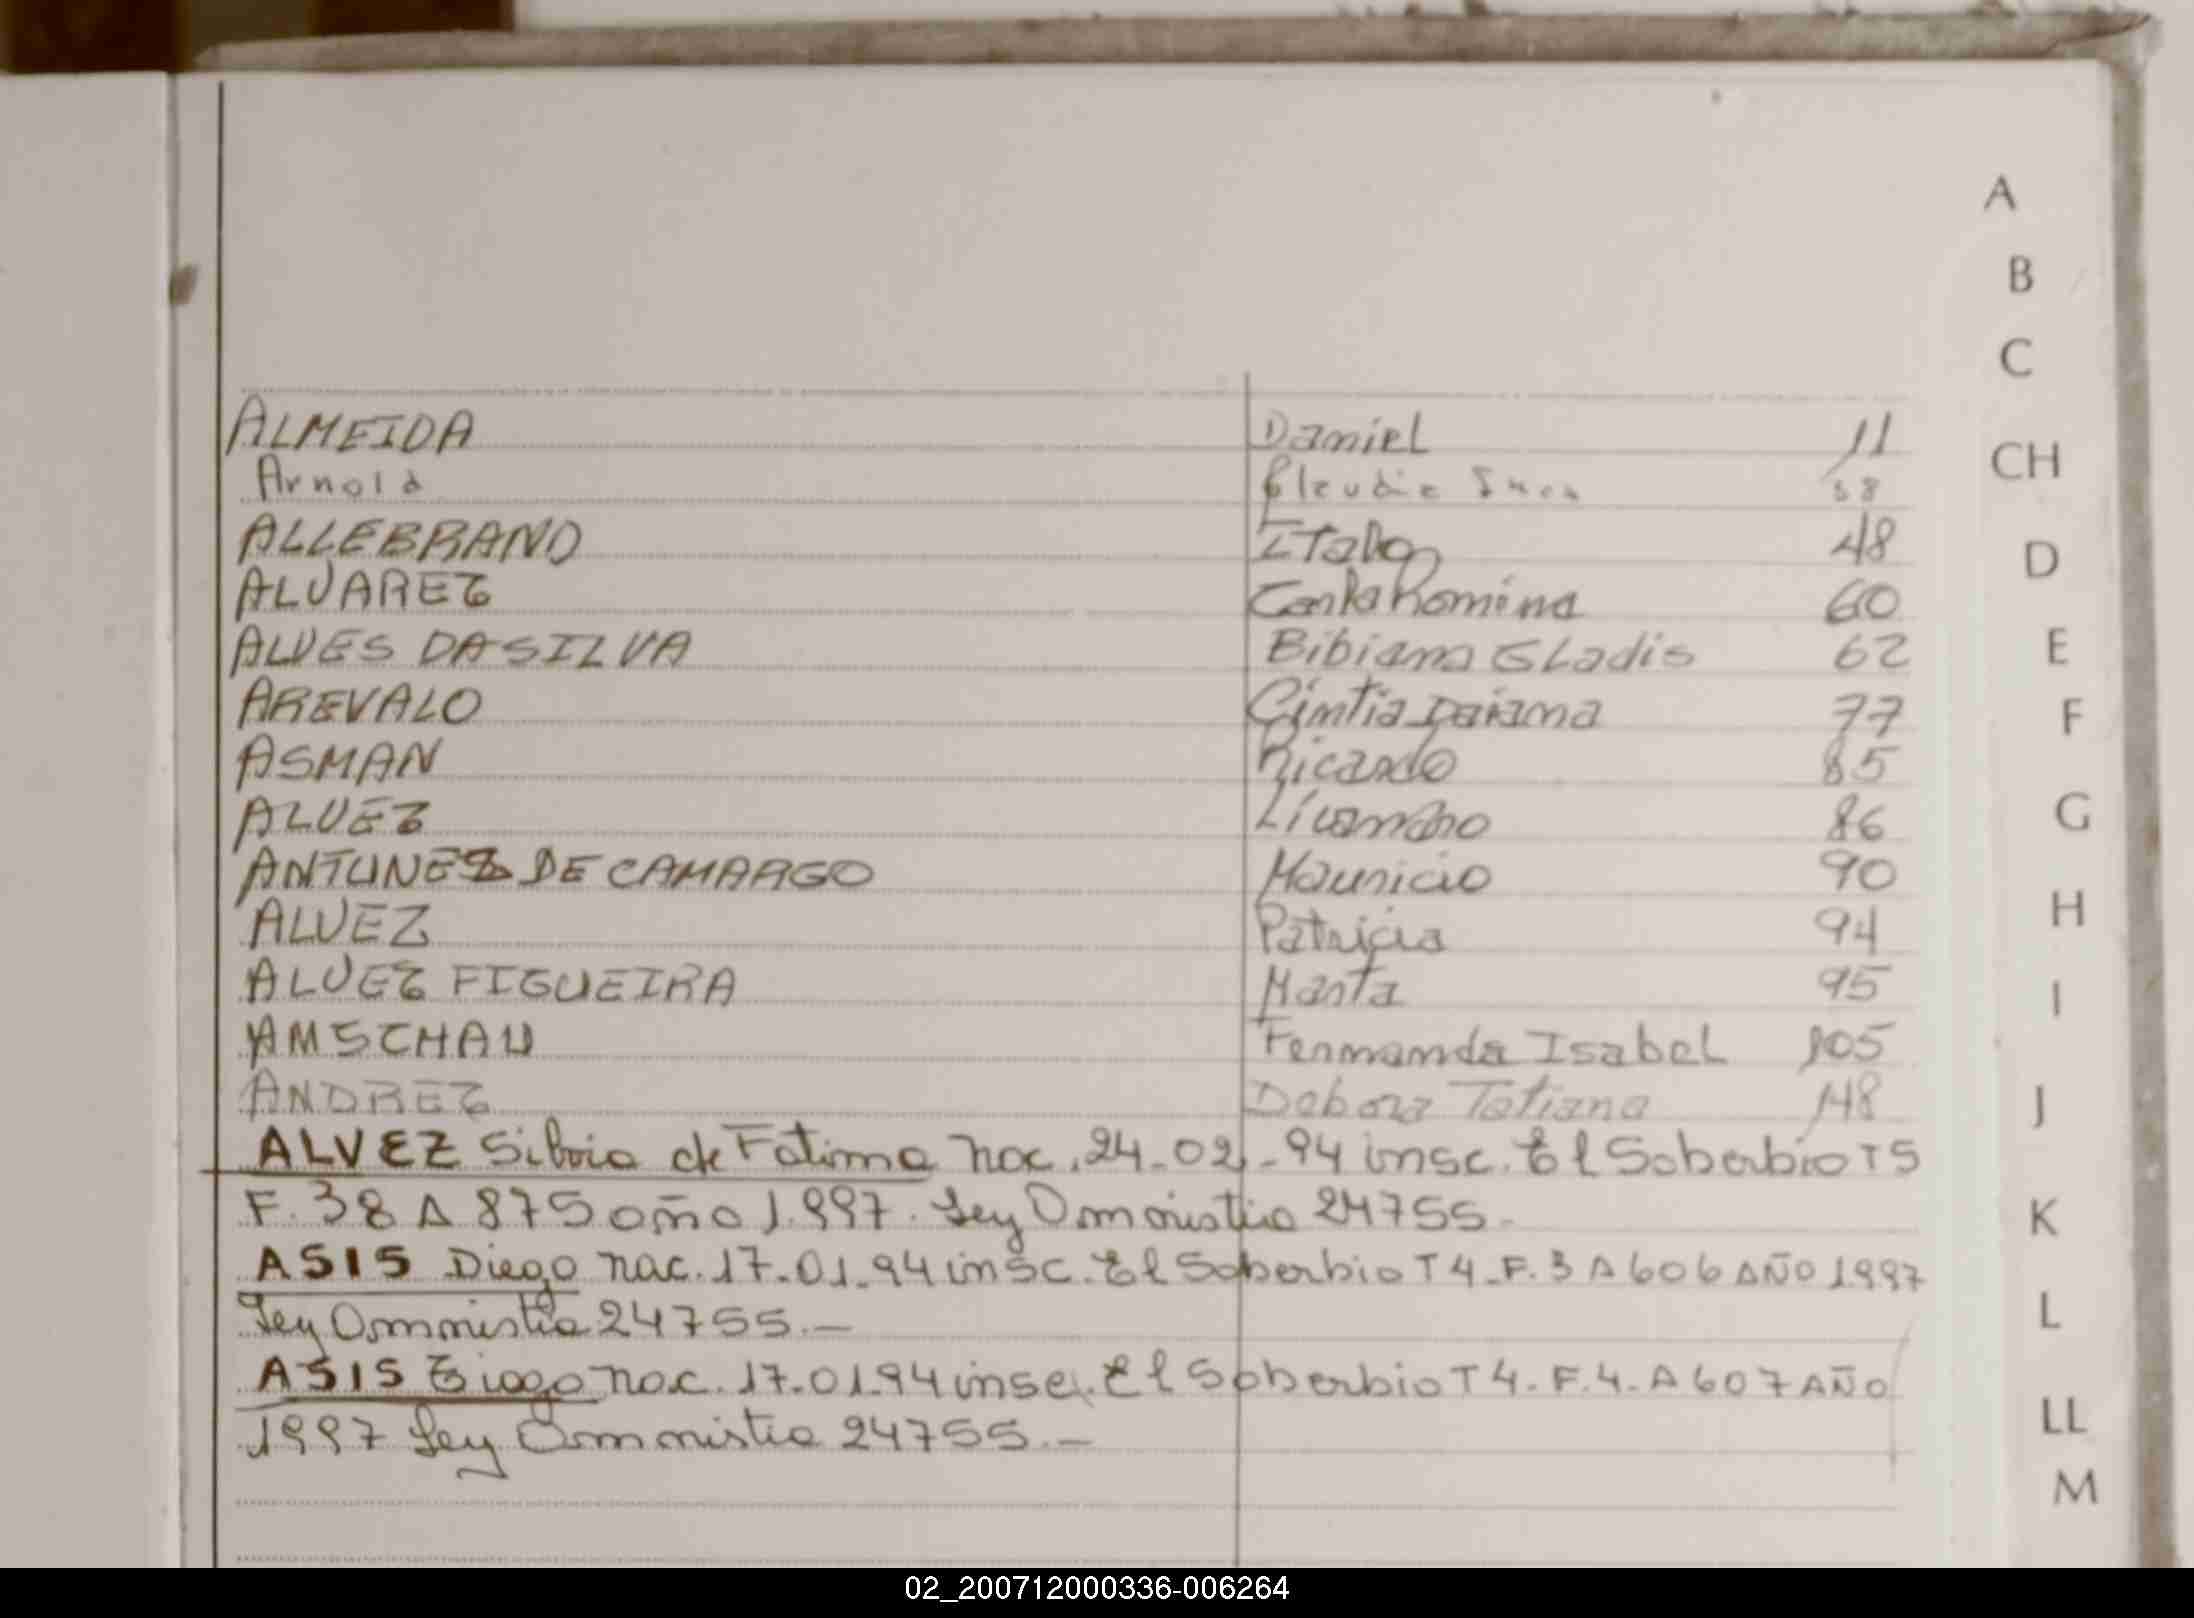 A
B
C
ALMEIDA Daniel 11
CH
Arnold Claudia 38
ALLEBRAND Italo 48
D
ALVAREZ Carla Romina 60
ALVES DA SILVA Bibiana Gladis 62
E
AREVALO Cintia Daiana 77
F
ASMAN Ricardo 85
ALVEZ Licandro 86
G
ANTUNEZ DE CAMARGO Mauricio 90
ALVEZ Patricia 94
H
ALVEZ FIGUEIRA Marta 95
I
AMSCHAU Fernanda Isabel 105
ANDREZ Debora Tatiana 148
J
ALVEZ Silvia de Fatima nac. 24-02-94 insc. El Soberbio T5
F. 38 A 875 año 1.997. Ley Amnistia 24755-
K
ASIS Diego nac. 17-01-94 insc. El Soberbio T4-F.3 A 606 AÑO 1997
L
Ley Amnistia 24755.—
ASIS nac. 17-01-94 insc. El Soberbio T4-F.4-A 607 AÑO
LL
1997 Ley Amnistia 24755.—
M
02_200712000336-006264